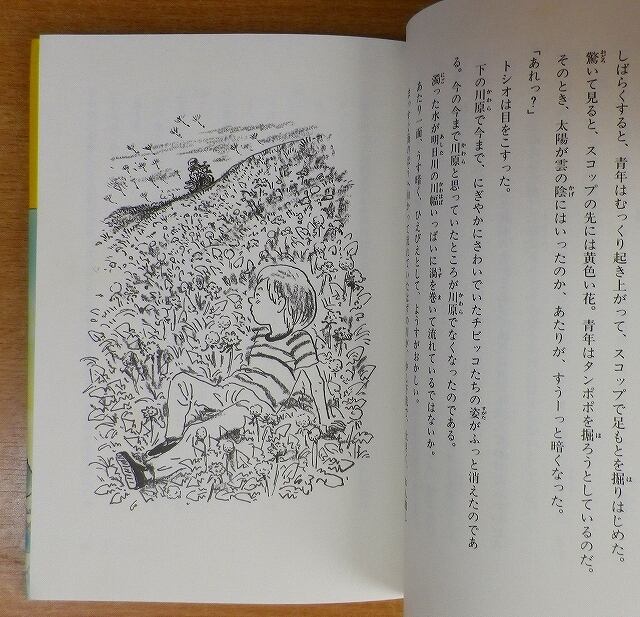 しばらくすると、青年はむっくり起き上がって、スコップで足もとを掘りはじめた。
驚いて見ると、スコップの先には黄色い花。青年はタンポポを掘ろうとしているのだ。
そのとき、太陽が雲の陰にはいったのか、あたりが、すうーっと暗くなった。
「あれっ?」
トシオは目をこすった。
下の川原で今まで、にぎやかにさわいでいたチビッコたちの姿がふっと消えたのであ
る。今の今まで川原と思っていたところが川原でなくなったのである。
濁った水が明日川の川幅いっぱいに渦を巻いて流れているではないか。
あたり一面、うす暗く、ひえびえとして、ようすがおかしい。